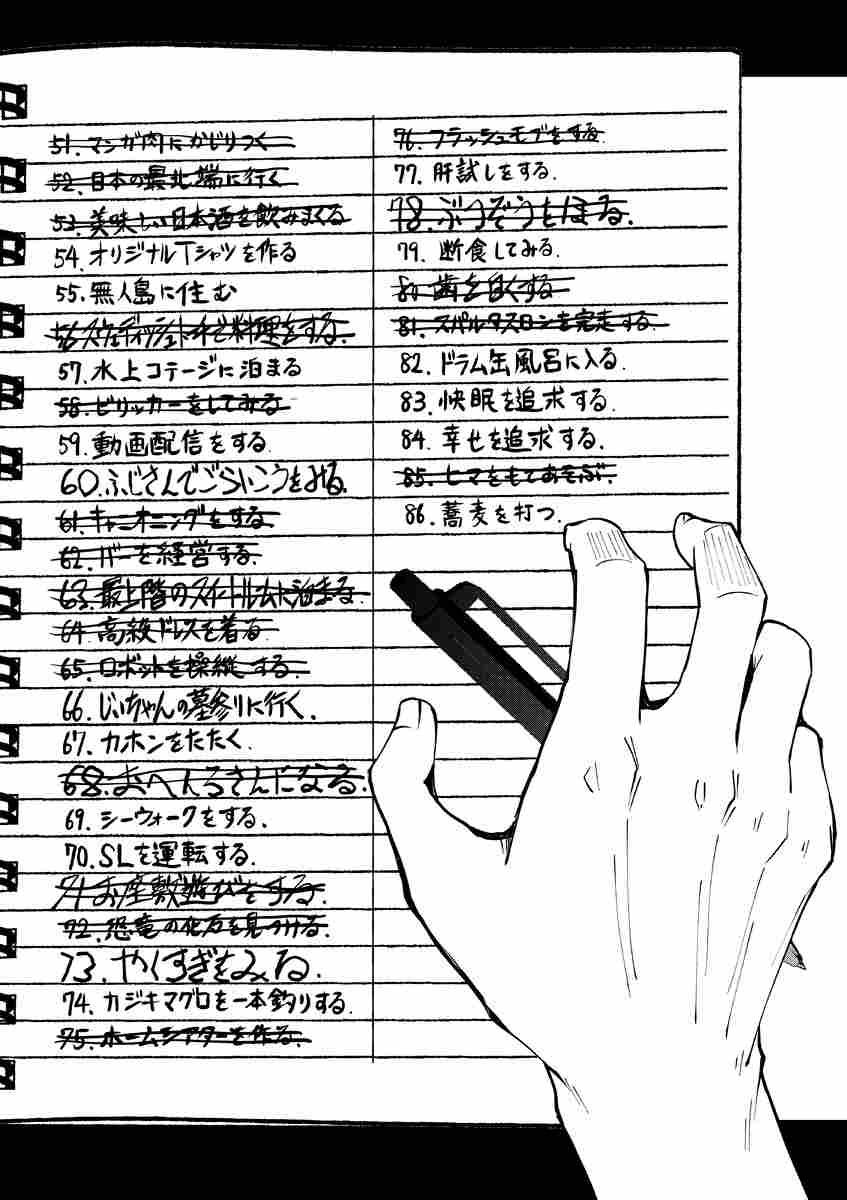 51. マンガ肉にかじりつく
52. 日本の最北端に行く
53. 美味しい日本酒を飲みまくる
54. オリジナルTシャツを作る
55. 無人島に住む
56. スウェディッシュトーチで料理をする.
57. 水上コテージに泊まる
58. ヒリッカーをしてみる
59. 動画配信をする.
60. ふじさんでごらいこうをみる.
61. キャニオニングをする.
62. バーを経営する.
63. 最上階のスイートルームに泊まる.
64. 高級ドレスを着る.
65. ロボットを操縦する.
66. じいちゃんの墓参りに行く.
67. カホンをたたく.
68. おへんろさんになる.
69. シーウォークをする.
70. SLを運転する.
71. お座敷遊びをする.
72. 恐竜の化石を見つける.
73. やくすぎをみる.
74. カジキマグロを一本釣りする.
75. ホームシアターを作る.
76. フラッシュモブをする.
77. 肝試しをする.
78. ぶつぞうをほる.
79. 断食してみる.
80. 歯を白くする
81. スパルタスロンを完走する.
82. ドラム缶風呂に入る.
83. 快眠を追求する.
84. 幸せを追求する.
85. ヒマをもてあそぶ.
86. 蕎麦を打つ.